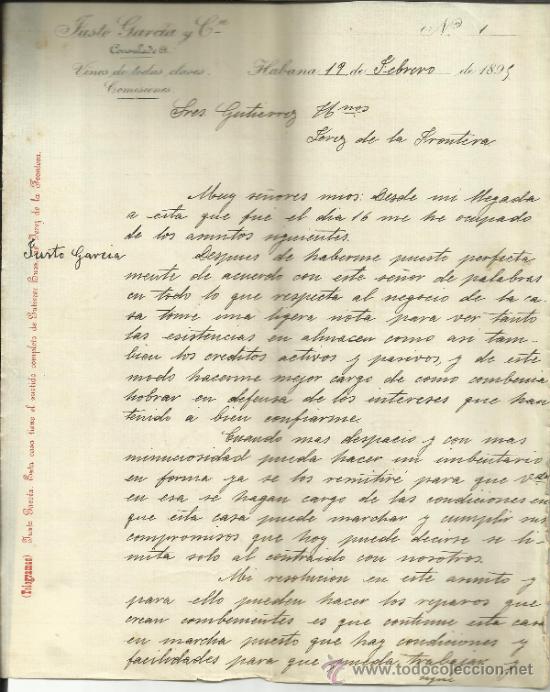 Justo García y Cª
Nº 1
Consulado
Vinos de todas clases.
Comisiones.
Habana 19 de Febrero de 1895
Sres Gutierrez Hnos
Jerez de la Frontera
Muy señores mios: Desde mi llegada
a esta que fué el dia 16 me he ocupado
de los asuntos siguientes.
Justo Garcia
Despues de haberme puesto perfecta
mente de acuerdo con este señor de palabras
en todo lo que respecta al negocio de la ca
sa tome una ligera nota para ver tanto
las existencias en almacen como asi tam-
bien los creditos activos y pasivos, y de este
modo hacerme mejor cargo de como combenia
hobrar en defensa de los intereses que han
tenido a bien confiarme.
Cuando mas despacio y con mas
minuciosidad pueda hacer un imbentario
en forma ya se los remitiré para que Vdes
en esa se hagan cargo de las condiciones en
que esta casa puede marchar y cumplir sus
compromisos que hoy puede decirse se li-
mita solo al contraido con nosotros.
Mi resolucion en este asunto y
para ello pueden hacer los reparos que
crean combenientes es que continue esta casa
en marcha puesto que hay condiciones y
facilidades para que pueda trabajar y
(Telegramas) Justo García. Esta casa tiene el surtido completo de Gutierrez Hnos. de Jerez de la Frontera.
todocoleccion.net